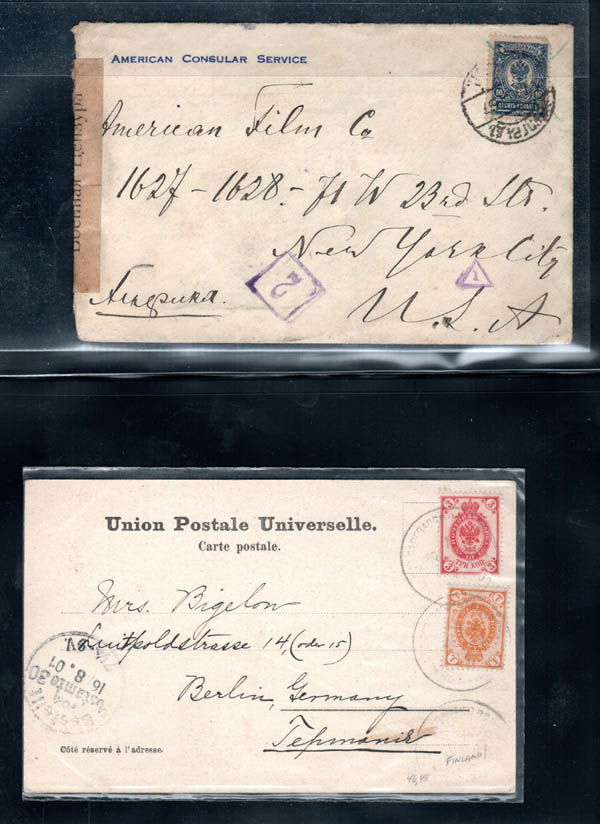 AMERICAN CONSULAR SERVICE
Военная Цензура
American Film Co
1627-1628-71 W 23rd Str.
New York City
U.S.A
Америка.
2
1
10 10
ДЕСЯТЬ КОПѢЕКЪ
Union Postale Universelle.
Carte postale.
3 3
ТРИ КОП.
3 3
1 1
Mrs. Bigelow
Luitpoldstrasse 14, (oder 15)
Berlin, Germany
Германія
16.8.01
Côté réservé à l'adresse.
FINLAND
46,48